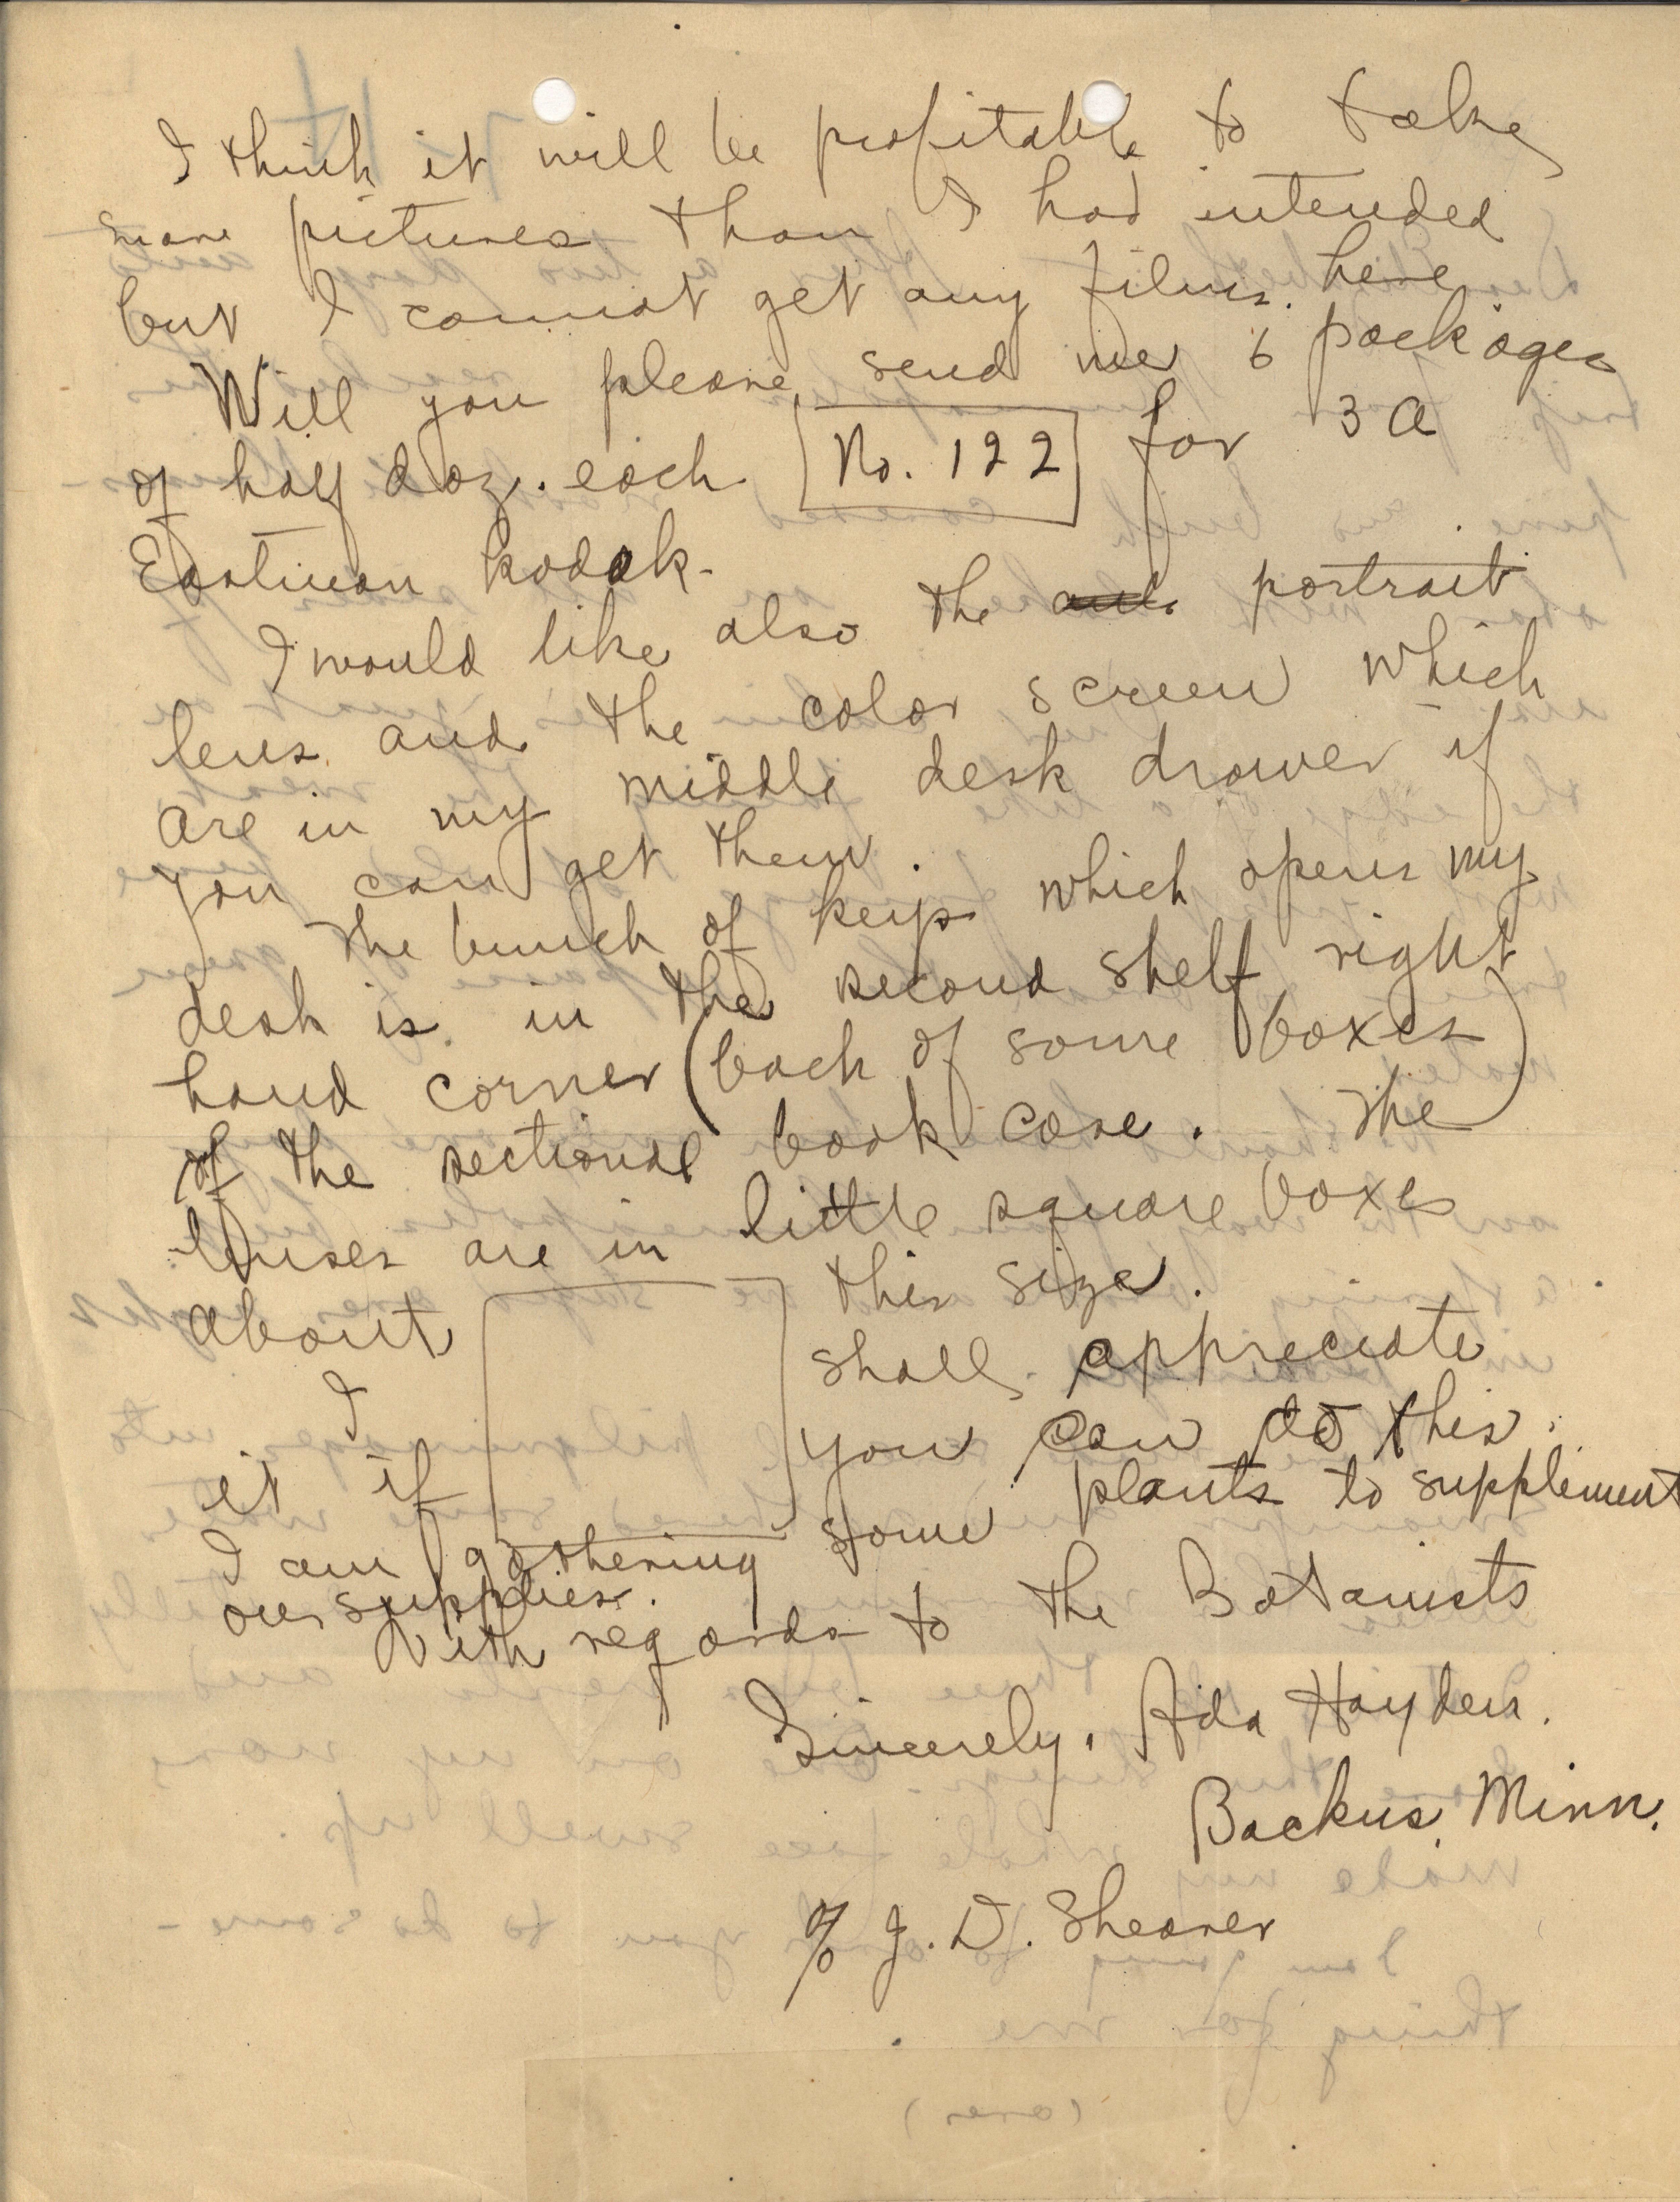 I think it will be profitable to take
more pictures than I had intended
but I cannot get any films here
Will you please send me 6 packages
of half doz. each No. 122 for 3 A
Eastman Kodak.
I would like also the portrait
lens and the color screen which
are in my middle desk drawer if
you can get them.
The bunch of keys which opens my
desk is in the second shelf right
hand corner (back of some boxes)
of the sectional book case. The
lenses are in little square boxes
about this size.
I shall appreciate
it if you can do this.
I am gathering some plants to supplement
our supplies.
With regards to the Botanists
Sincerely, Ada Hayden.
Backus, Minn.
% J. D. Shearer